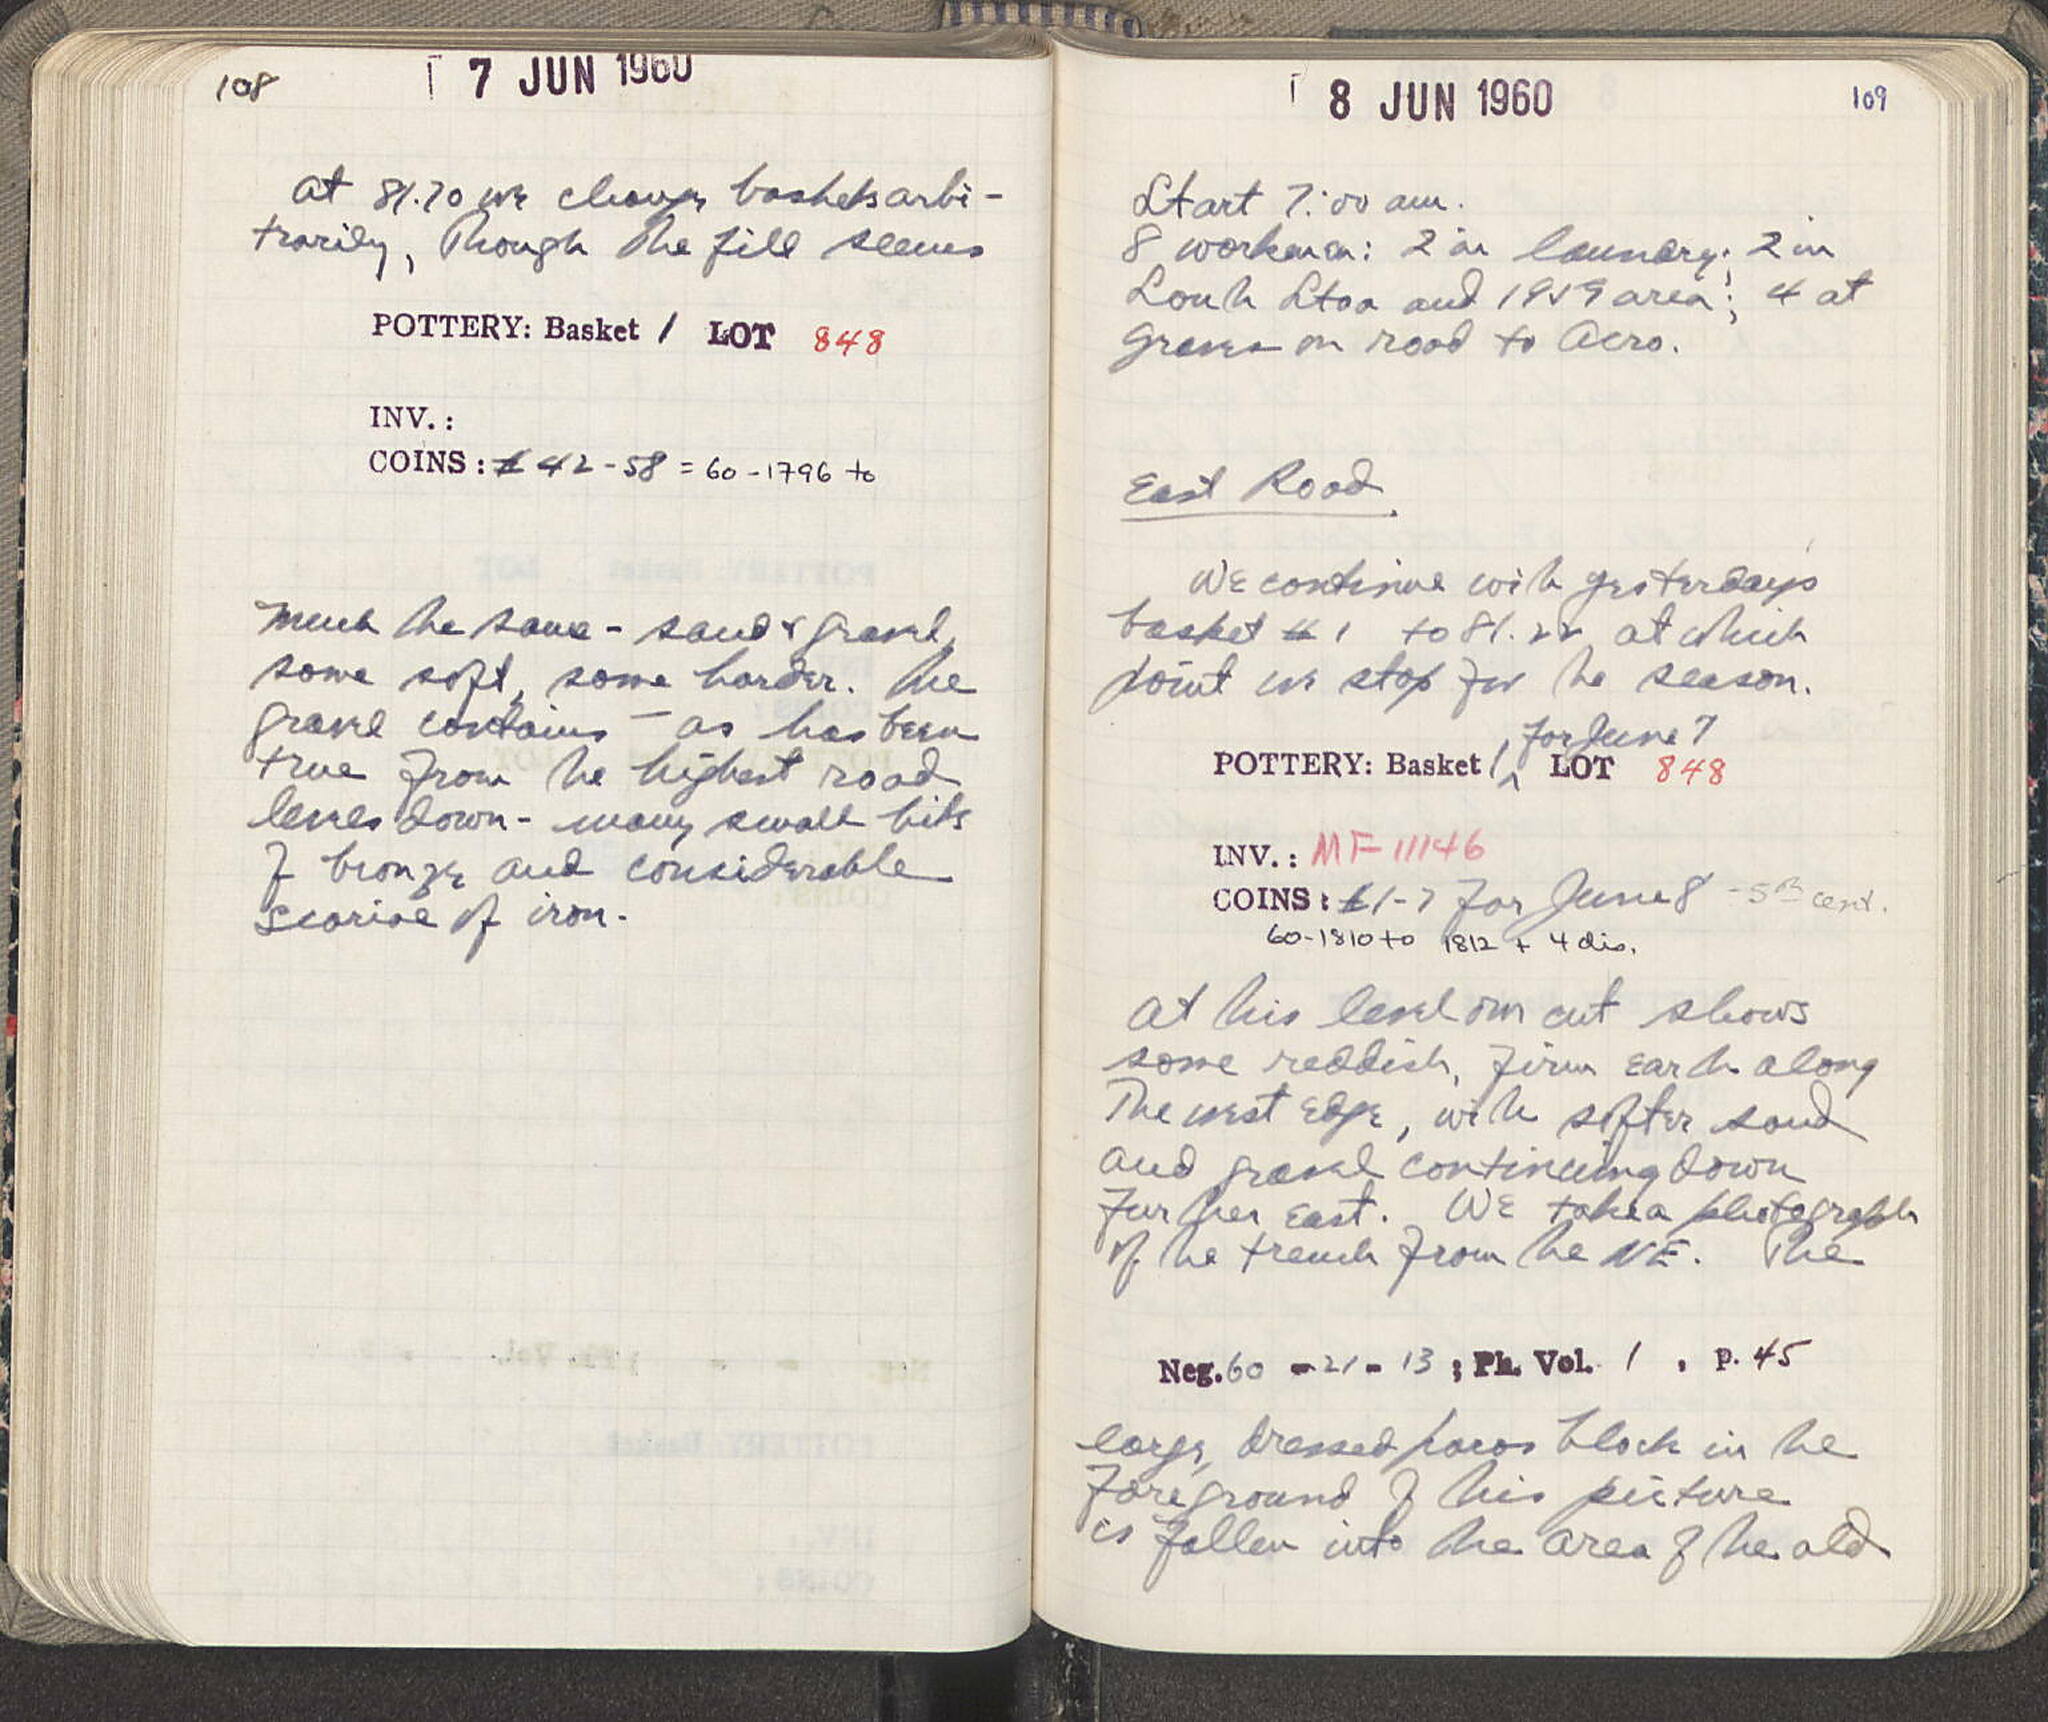 108
7 JUN 1960
at 81.70 we change baskets arbi-
trarily, though the fill seems
POTTERY: Basket 1 LOT 848
INV.:
COINS: # 42-58 = 60-1796 to
much the same - sand & gravel,
some soft, some harder. The
gravel contains - as has been
true from the highest road
levels down - many small bits
of bronze and considerable
scoriae of iron.
8 JUN 1960
109
Start 7:00 am.
8 workmen: 2 in laundry; 2 in
South Stoa and 1959 area; 4 at
graves on road to Acro.
East Road.
We continue with yesterdays
basket # 1 to 81.22 at which
point we stop for the season.
for June 7
POTTERY: Basket 1 ^ LOT 848
INV.: MF 11146
COINS: #1-7 for June 8 - 5th cent.
60-1810 to 1812 + 4 dis.
At this level our cut shows
some reddish, firm earth along
the west edge, with softer sand
and gravel continuing down
further east. We take a photograph
of the trench from the NE. The
Neg. 60 - 21 - 13 ; Ph. Vol. 1 , p. 45
large, dressed poros block in the
foreground of this picture
is fallen into the area of the old